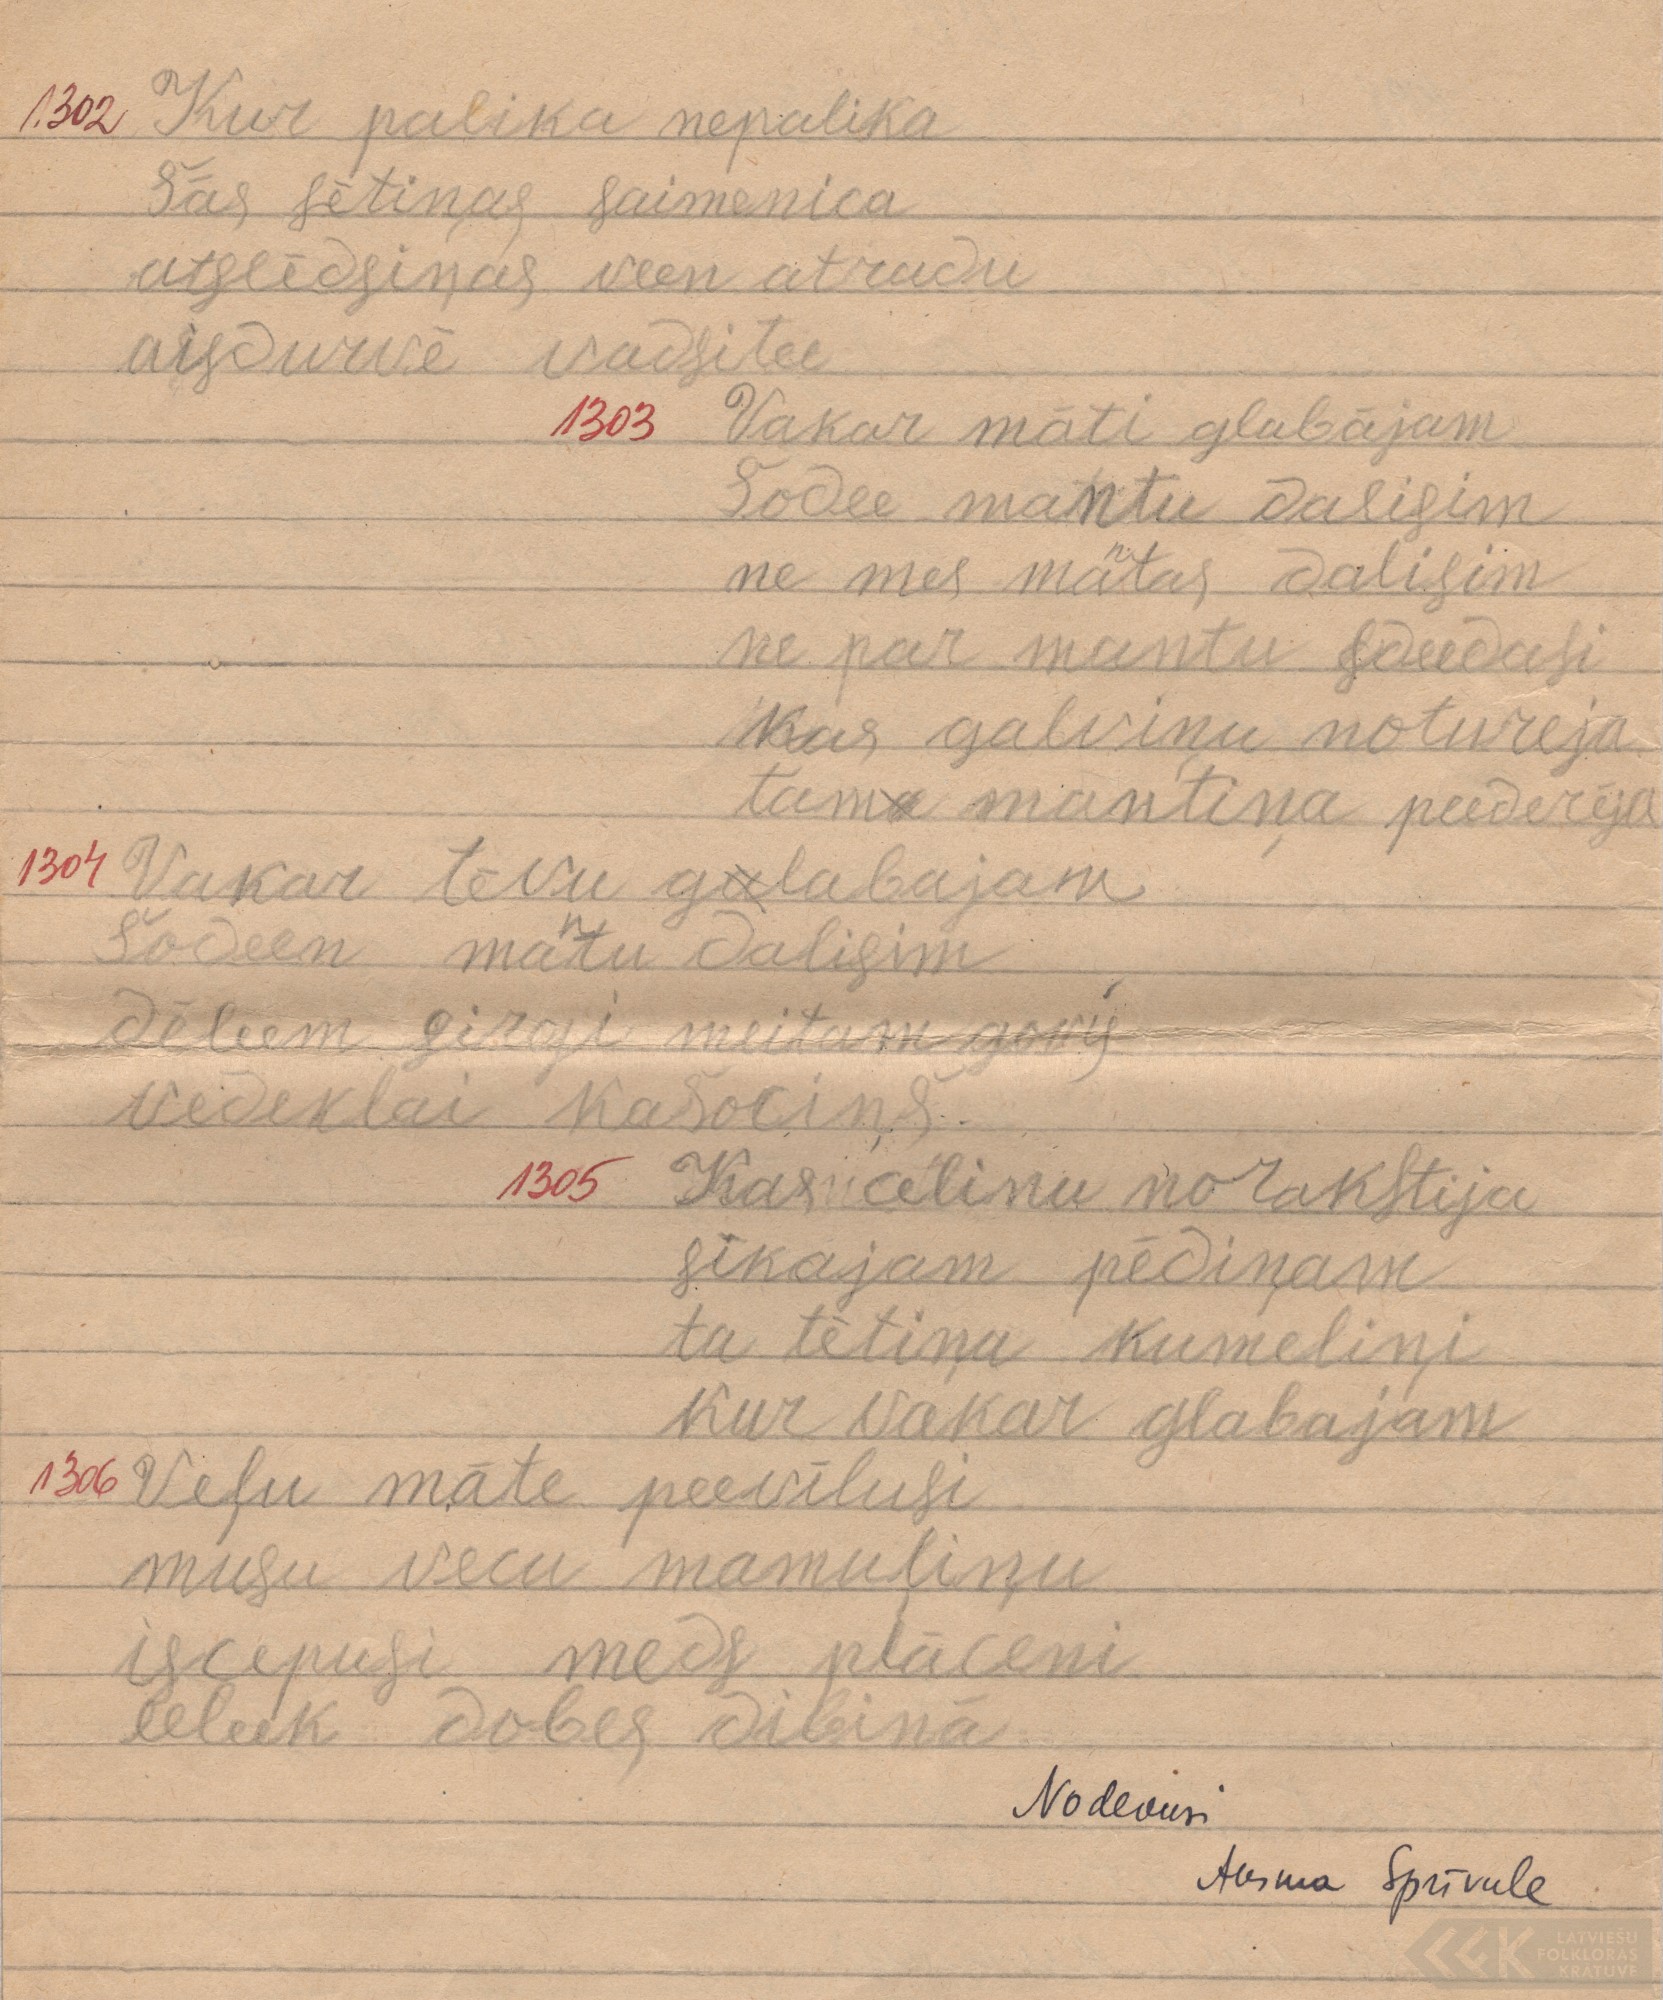 1302 Kur palika nepalika
Šās sētiņas saimenica
atslēdsiņas veen atradu
aisdurvē vadsitee
1303 Vakar māti glabājam
Šodee mantu dalisim
ne mes mantas dalisim
ne par mantu
kas galviņu notureja
tam mantiņa peederēja
1304 Vakar tēvu glabajam
Šodeen mantu dalisim
dēleem sirgi meitam govij
vedeklai kašociņš.
1305 Kas celinu norakstija
sīkajam pēdiņam
ta tētiņa kumeliņi
kur vakar glabajam
1306 Veļu māte peevīlusi
musu vecu mamuliņu
iscepusi meds plāceni
eeleek dobes dibinā
Nodevusi
Ausma Sprīvule
LATVIEŠU
FOLKLORAS
KRĀTUVE